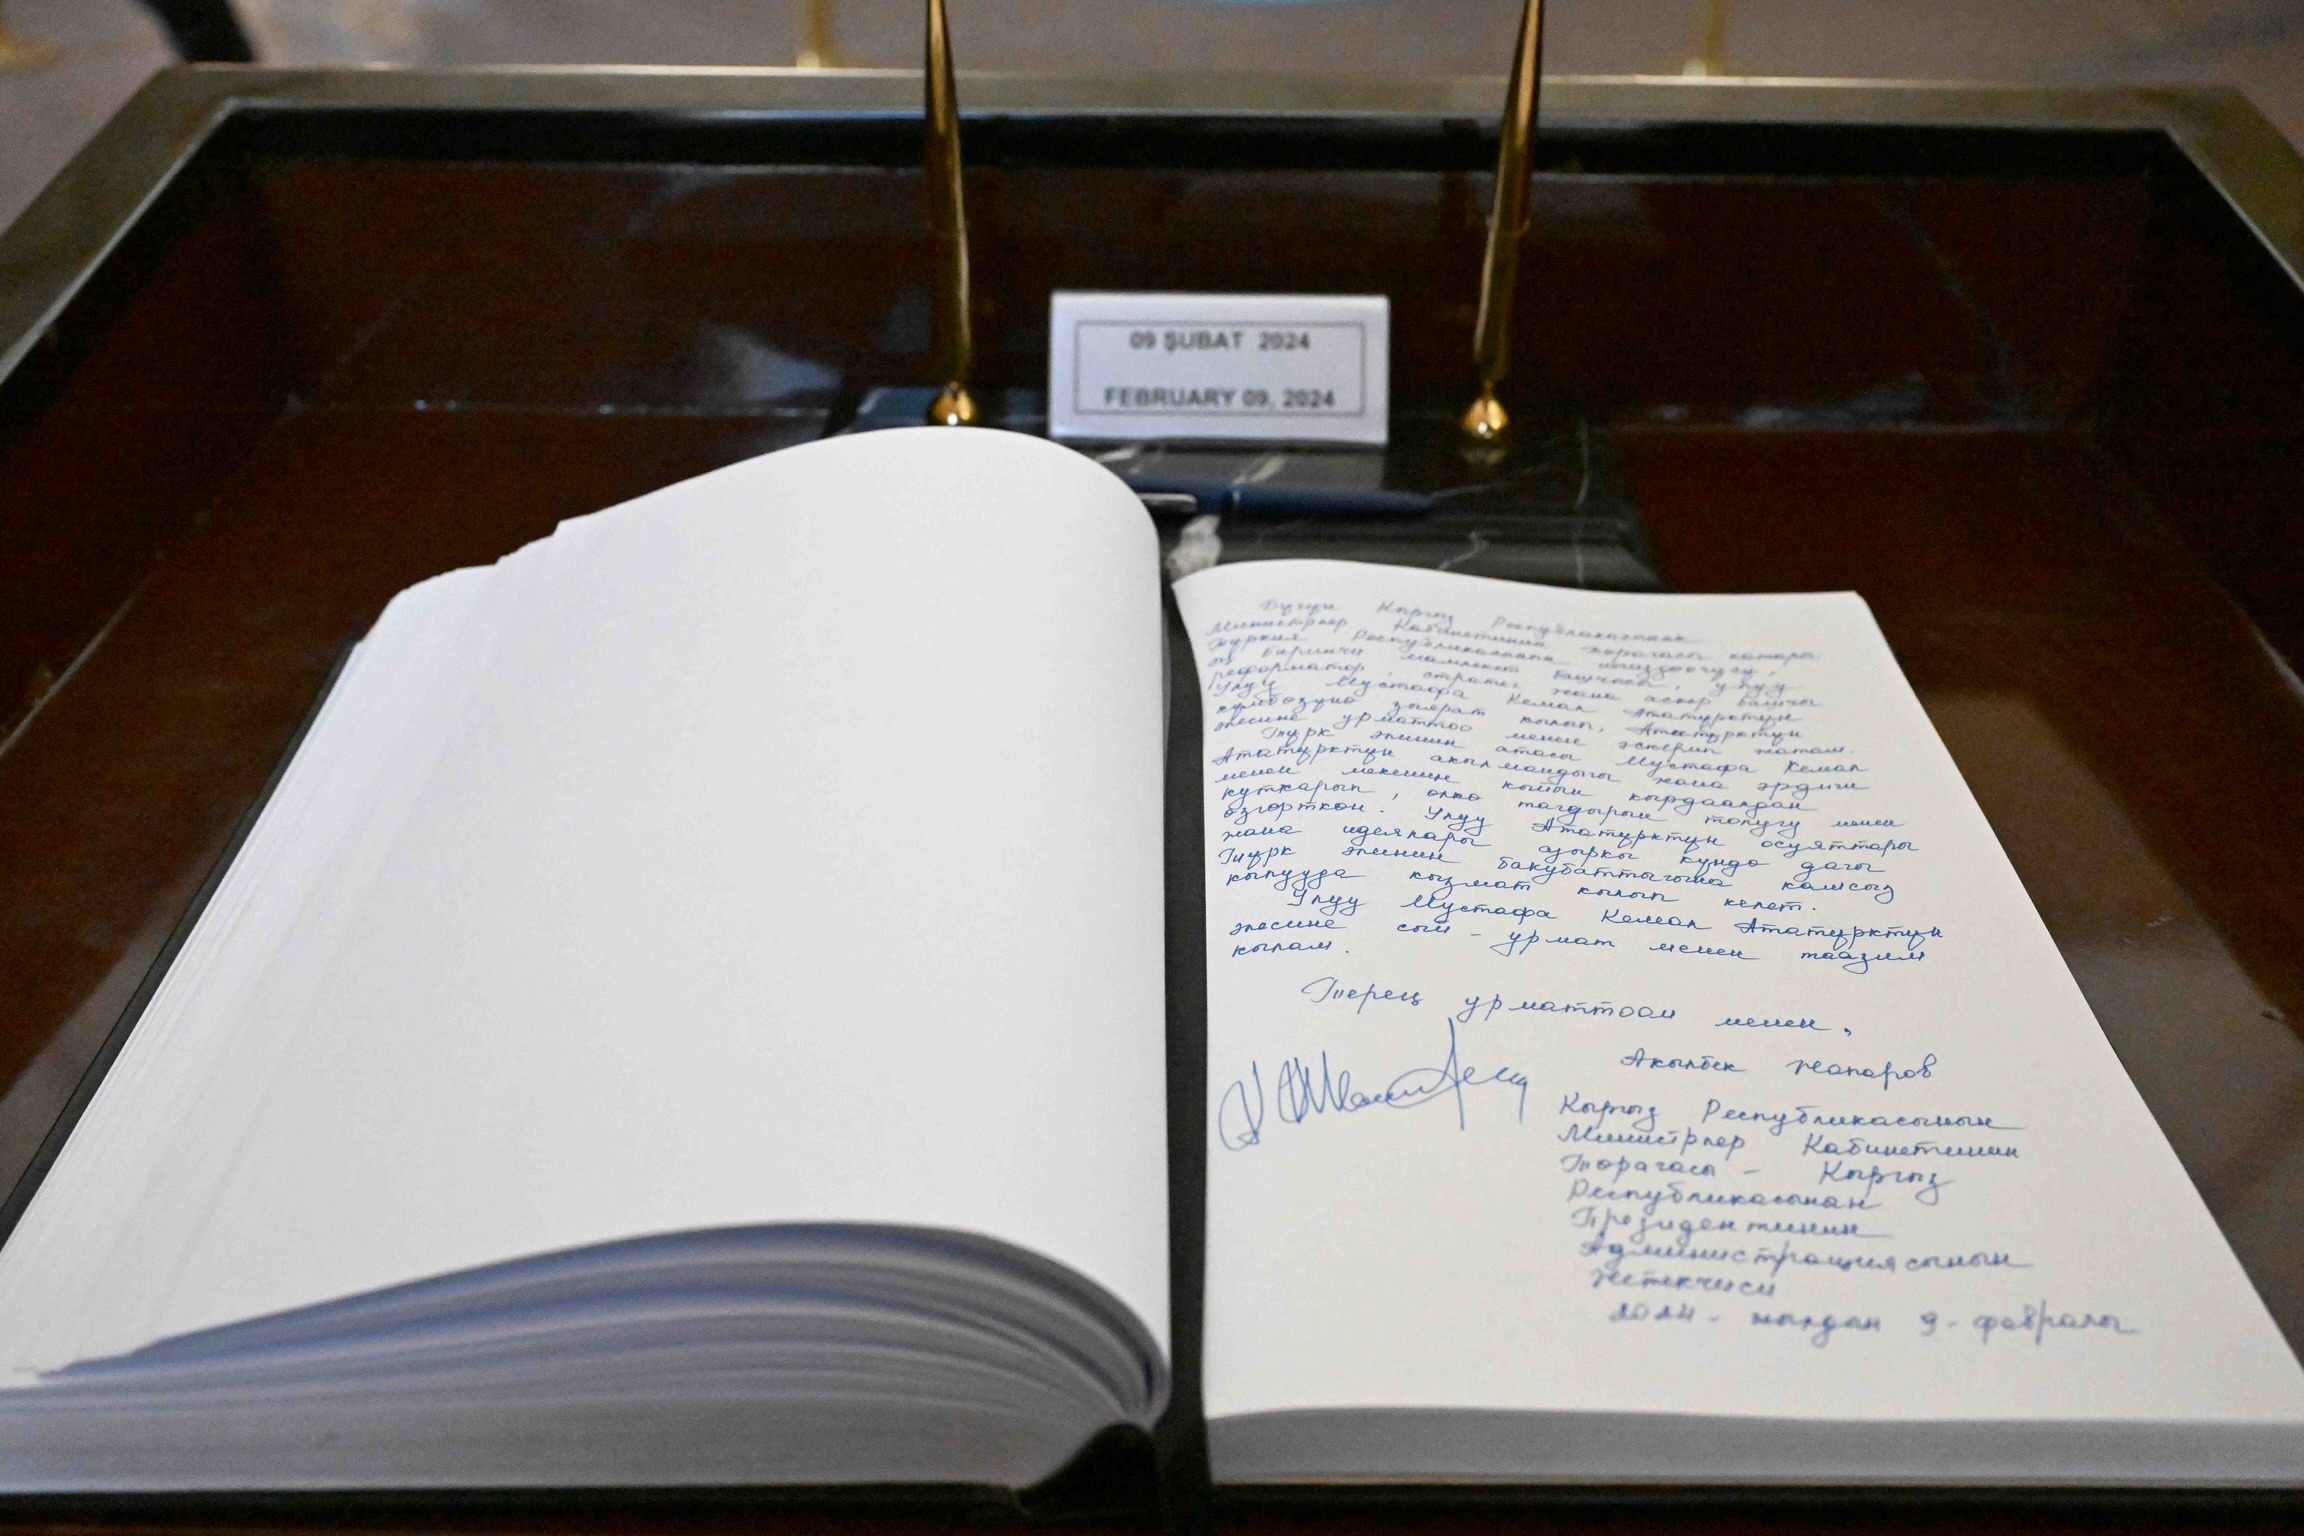 09 ŞUBAT 2024
FEBRUARY 09, 2024
Бүгүн Кыргыз Республикасынын
Министрлер Кабинетинин төрагасы катары
Түркия Республикасынын негиздөөчүсү,
Биринчи мамлекет башчысы, улуу
реформатор, стратег жана аскер башчы
Улуу Мустафа Кемал Ататүрктүн
күмбөзүнө зыярат кылып, Ататүрктүн
элесине урматтоо менен эскерип жатам.
Түрк элинин атасы Мустафа Кемал
Ататүрктүн акылмандыгы жана эрдиги
менен мекенин кыйын кырдаалдан
куткарып, өлкө тагдырын толугу менен
өзгөрткөн. Улуу Ататүрктүн осуяттары
жана идеялары азыркы күндө дагы
Түрк элинин бакубаттыгына камсыз
кылууда кызмат кылып келет.
Улуу Мустафа Кемал Ататүрктүн
элесине сый-урмат менен таазим
кылам.
Терең урматтоом менен,
Акылбек Жапаров
Кыргыз Республикасынын
Министрлер Кабинетинин
Төрагасы - Кыргыз
Республикасынын
Президентинин
Администрациясынын
Жетекчиси
2024-жылдын 9-февралы